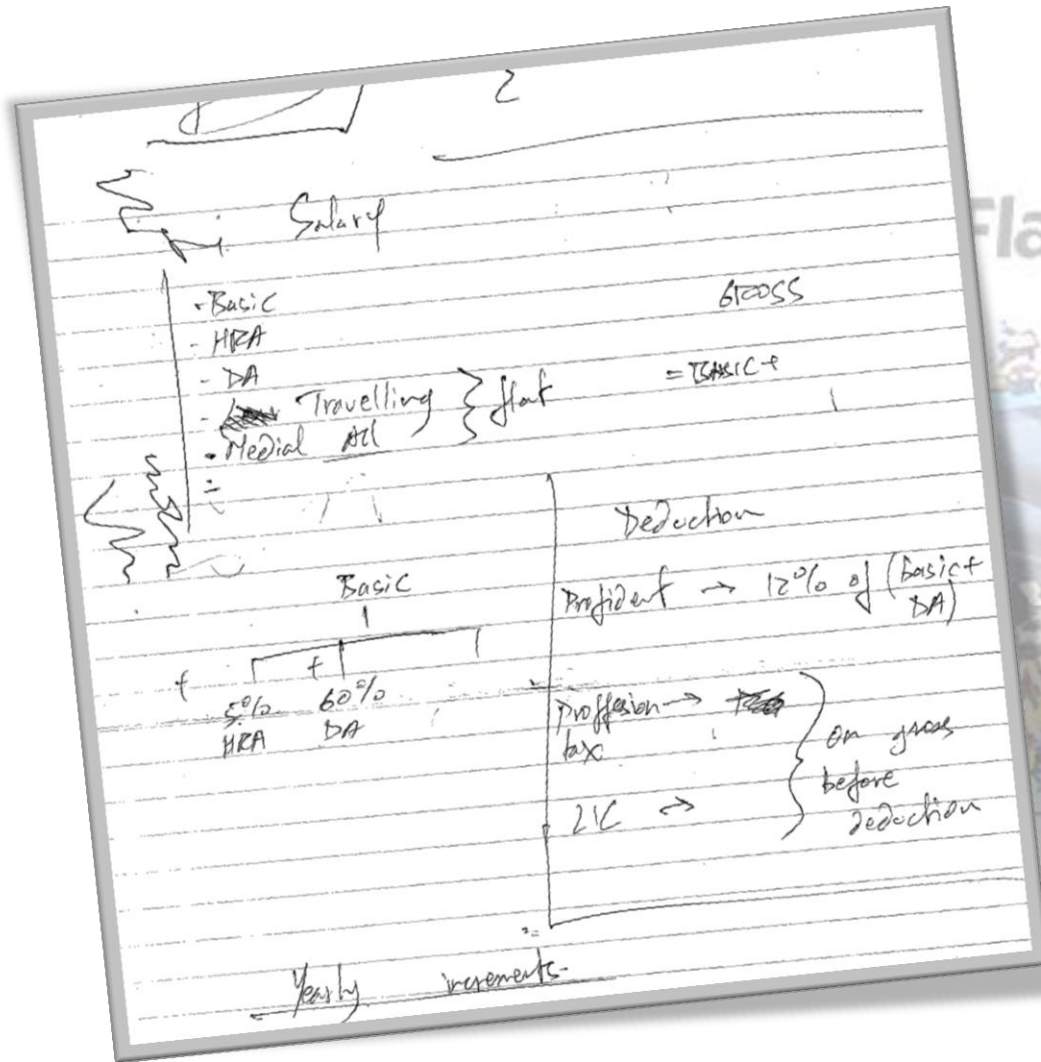 2
Salary
- Basic
- HRA
- DA
- Travelling
- Medial All
} flat
GROSS
= BASIC +
Basic
+ 5% HRA
+ 60% DA
Deduction
Profident → 12% of (Basic + DA)
Proffesion tax →
LIC →
} on gross
before
deduction
Yearly increments-
Fla